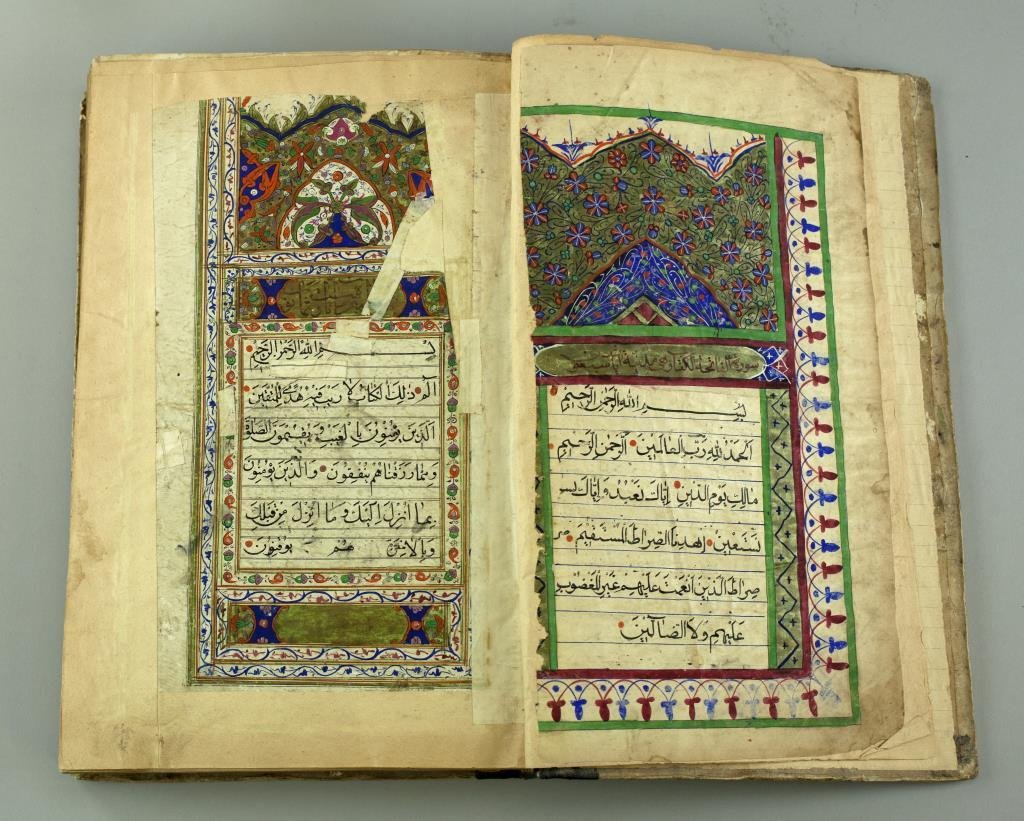 بسم الله الرحمن الرحيم
الحمد لله رب العالمين الرحمن الرحيم
مالك يوم الدين اياك نعبد واياك
نستعين اهدنا الصراط المستقيم
صراط الذين انعمت عليهم غير المغضوب
عليهم ولا الضالين
بسم الله الرحمن الرحيم
الم ذلك الكتاب لا ريب فيه هدى للمتقين
الذين يؤمنون بالغيب ويقيمون الصلوة
ومما رزقناهم ينفقون والذين يؤمنون
بما انزل اليك وما انزل من قبلك
وبالاخرة هم يوقنون